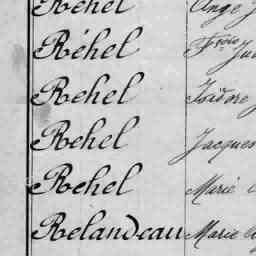 Rehel Ange
Réhel Frçois
Rehel Isidore
Rehel Jacques
Rehel Marie
Relandeau Marie